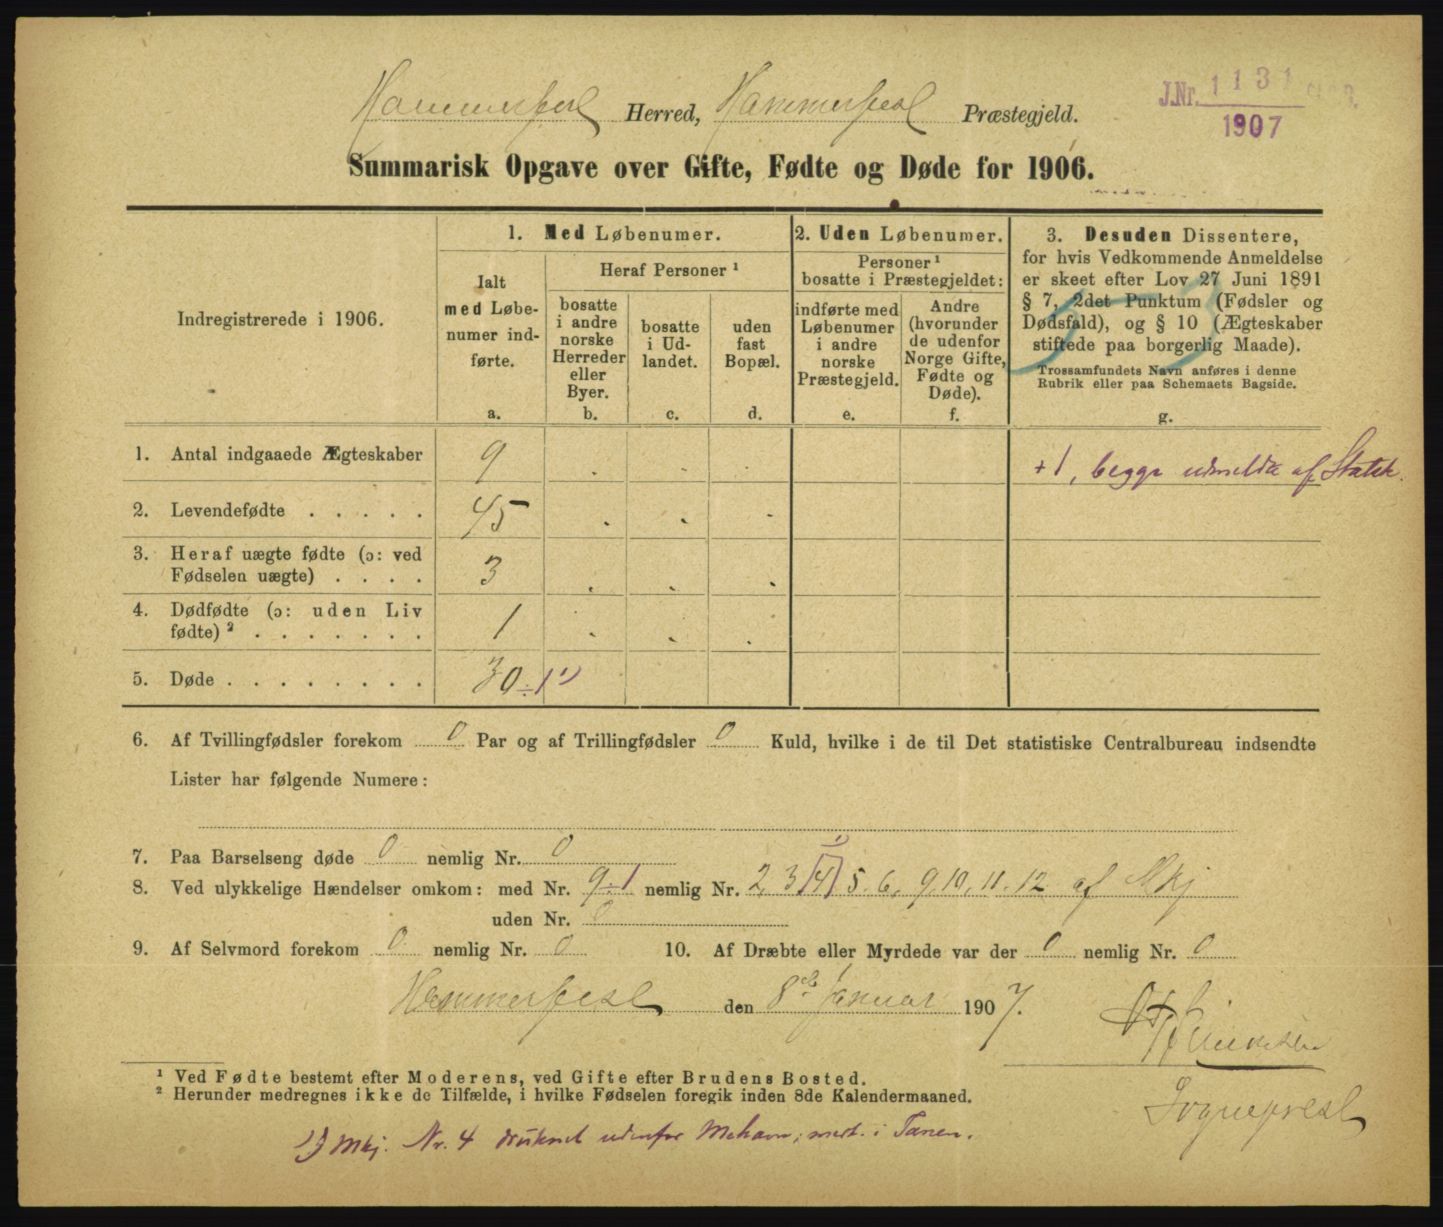 Hammerfest Herred, Hammerfest Præstegjeld.
J.Nr. 1131
1907
Summarisk Opgave over Gifte, Fødte og Døde for 1906.
Indregistrerede i 1906.
1. Med Løbenumer.
Ialt med Løbenumer indførte.
a.
Heraf Personer ¹
bosatte i andre norske Herreder eller Byer.
b.
bosatte i Udlandet.
c.
uden fast Bopæl.
d.
2. Uden Løbenumer.
Personer ¹ bosatte i Præstegjeldet:
indførte med Løbenumer i andre norske Præstegjeld.
e.
Andre (hvorunder de udenfor Norge Gifte, Fødte og Døde).
f.
3. Desuden Dissentere,
for hvis Vedkommende Anmeldelse
er skeet efter Lov 27 Juni 1891
§ 7, 2det Punktum (Fødsler og
Dødsfald), og § 10 (Ægteskaber
stiftede paa borgerlig Maade).
Trossamfundets Navn anføres i denne
Rubrik eller paa Schemaets Bagside.
g.
1. Antal indgaaede Ægteskaber 9 . . . +1, begge udmeldt af Statsk.
2. Levendefødte . . . . . 45 . . -
3. Heraf uægte fødte (ɔ: ved
Fødselen uægte) . . . . 3 . . .
4. Dødfødte (ɔ: uden Liv
fødte) ² . . . . . . . 1 . . .
5. Døde . . . . . . . . 30 ÷1 ¹)
6. Af Tvillingfødsler forekom 0 Par og af Trillingfødsler 0 Kuld, hvilke i de til Det statistiske Centralbureau indsendte
Lister har følgende Numere:
7. Paa Barselseng døde 0 nemlig Nr. 0
8. Ved ulykkelige Hændelser omkom: med Nr. 9÷1 nemlig Nr. 2, 3 [4] ¹) 5. 6, 9, 10, 11. 12 af Mkj
uden Nr. 0
9. Af Selvmord forekom 0 nemlig Nr. 0 10. Af Dræbte eller Myrdede var der 0 nemlig Nr. 0
Hammerfest den 8de Januar 1907.
Sogneprest
¹ Ved Fødte bestemt efter Moderens, ved Gifte efter Brudens Bosted.
² Herunder medregnes ikke de Tilfælde, i hvilke Fødselen foregik inden 8de Kalendermaaned.
1) Mkj. Nr. 4 druknet udenfor Mehavn; medt. i Tanen.